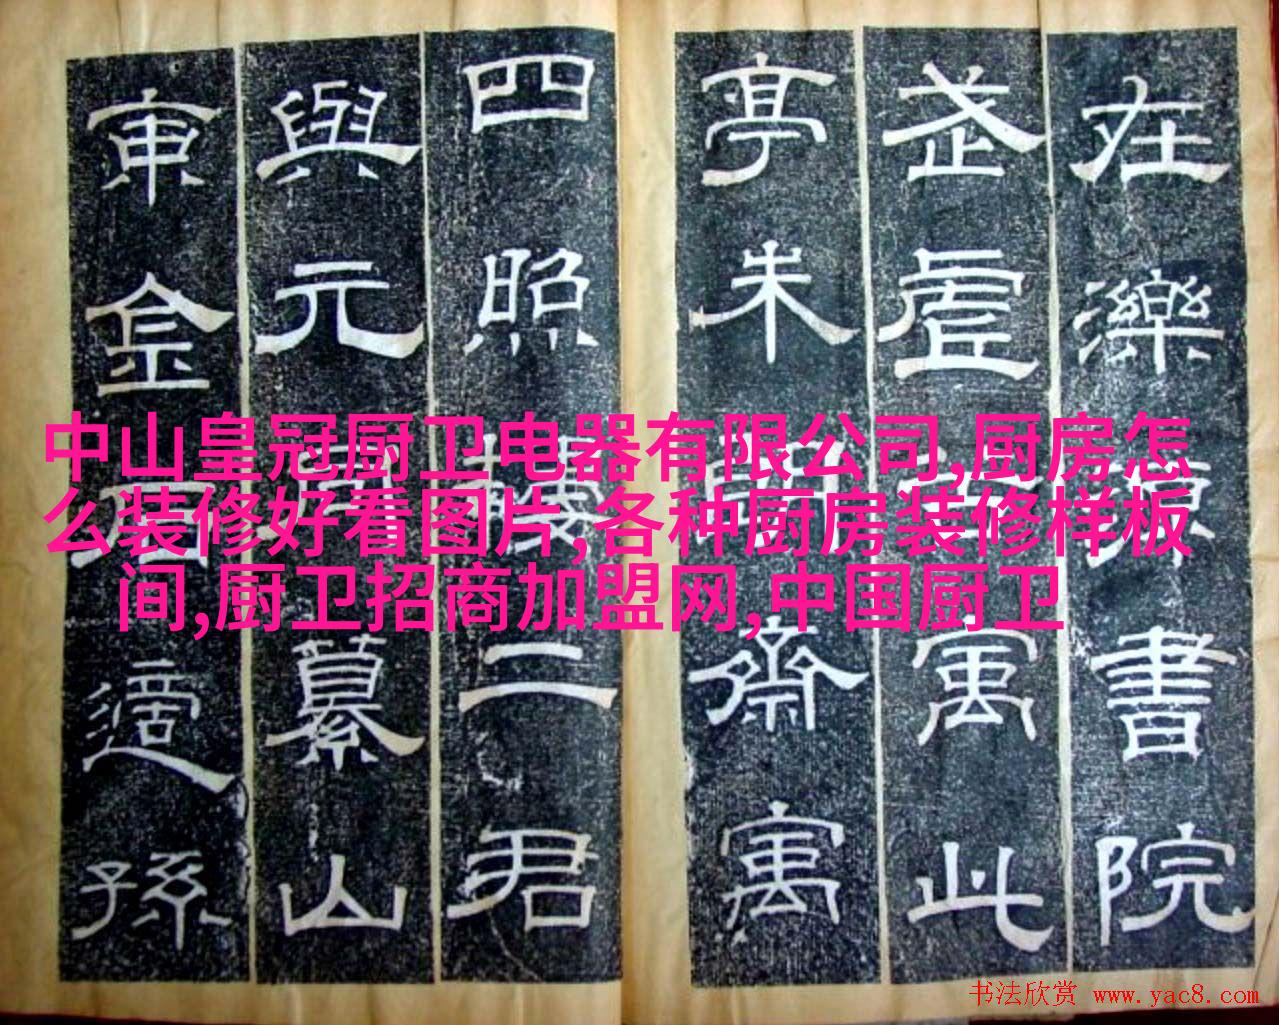 在濼源書院
武虛寓此
亭朱齋寓
四照樓二君
與元纂山
東金石適孫
中山皇冠厨卫电器有限公司,厨房怎
么装修好看图片,各种厨房装修样板
间,厨卫招商加盟网,中国厨卫
书法欣赏 www.yac8.com